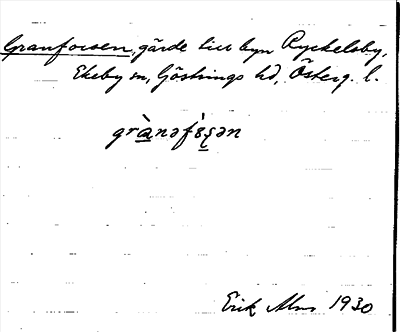 Granforsen, gärde till byn Ryckelsby,
Ekeby sn, Göstrings hd, Österg. l.
grànəfɤ̀ʂən
Erik Alm 1930